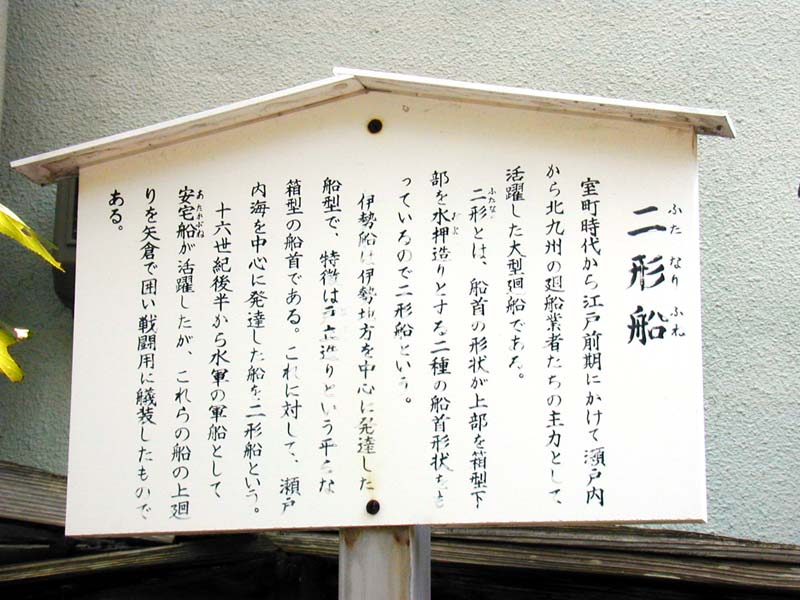 ふたなりふね
二形船
室町時代から江戸前期にかけて瀬戸内
から北九州の廻船業者たちの主力として
活躍した大型廻船である。
ふたなり
二形とは、船首の形状が上部を箱型下
部を水押造りとする二種の船首形状をも
っているので二形船という。
伊勢船は伊勢地方を中心に発達した
船型で、特徴は戸立造りという平らな
箱型の船首である。これに対して、瀬戸
内海を中心に発達した船を二形船という。
十六世紀後半から水軍の軍船として
あたかぶね
安宅船が活躍したが、これらの船の上廻
りを矢倉で囲い戦闘用に艤装したもので
ある。